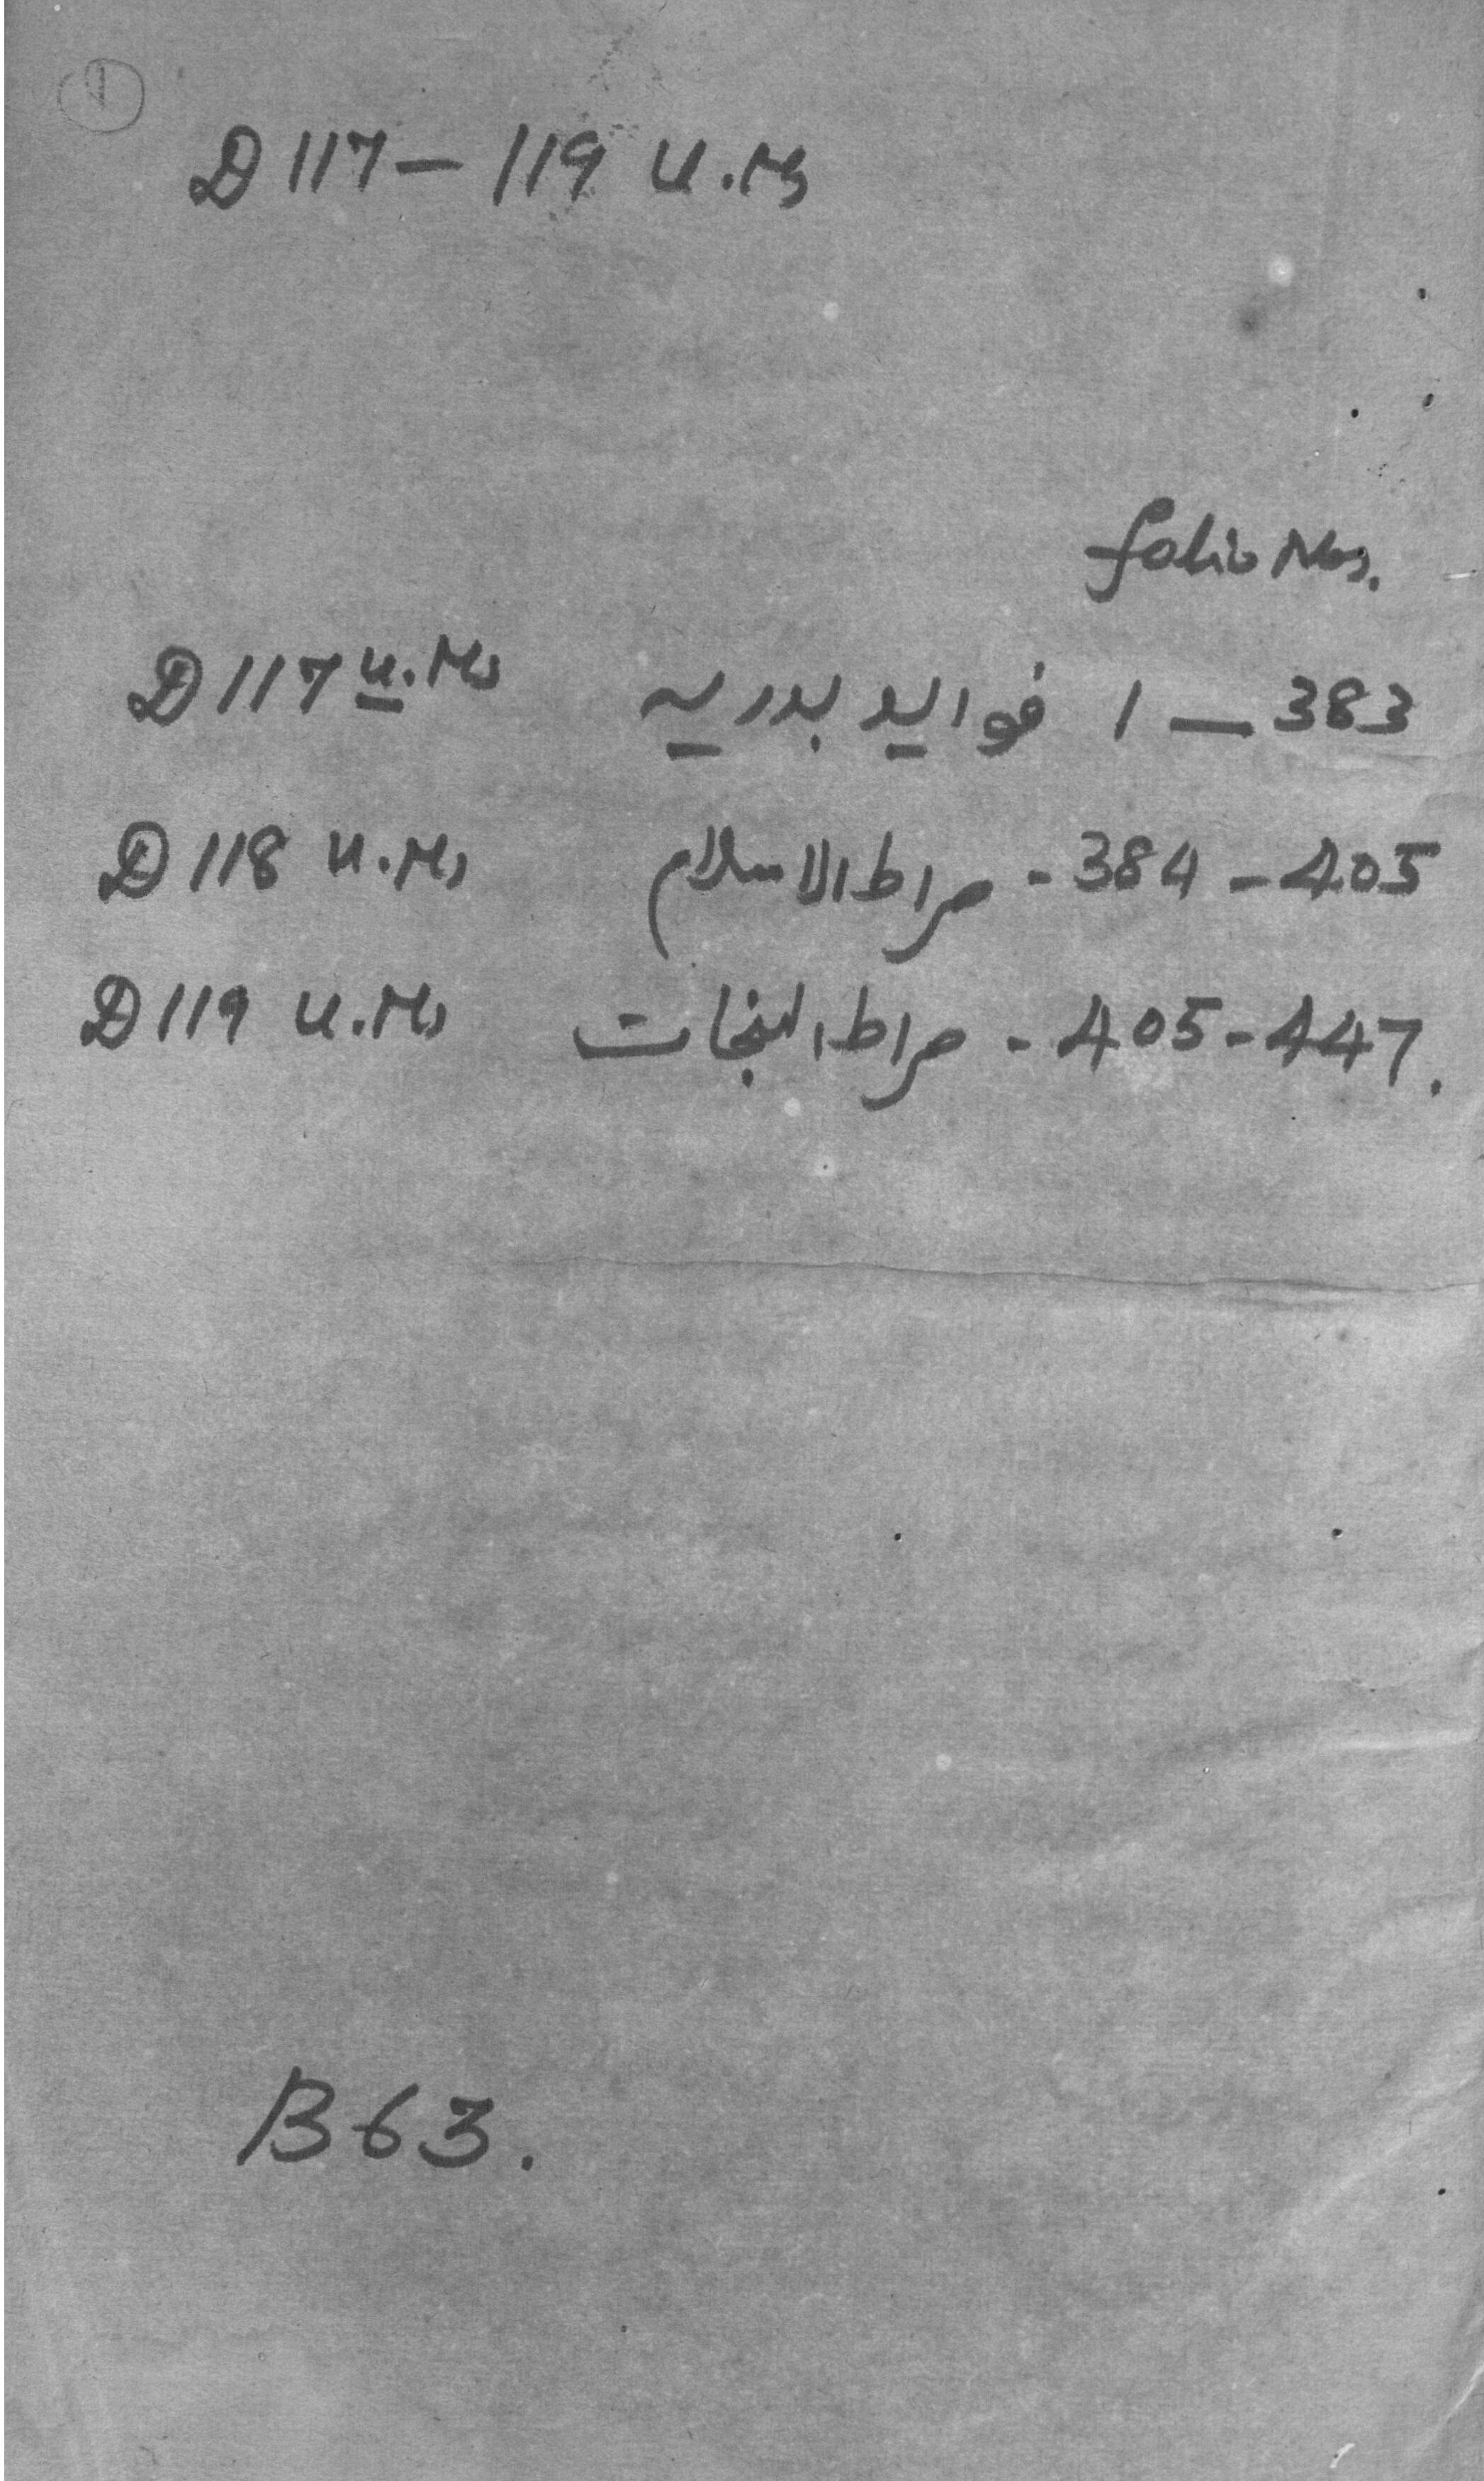 D 117 – 119 U.Ms
folio Nos.
D 117 U.Ms فوايد بدريه 1 — 383
D 118 U.Ms صراط الاسلام - 384 - 405
D 119 U.Ms صراط النجات - 405 - 447.
B 63.